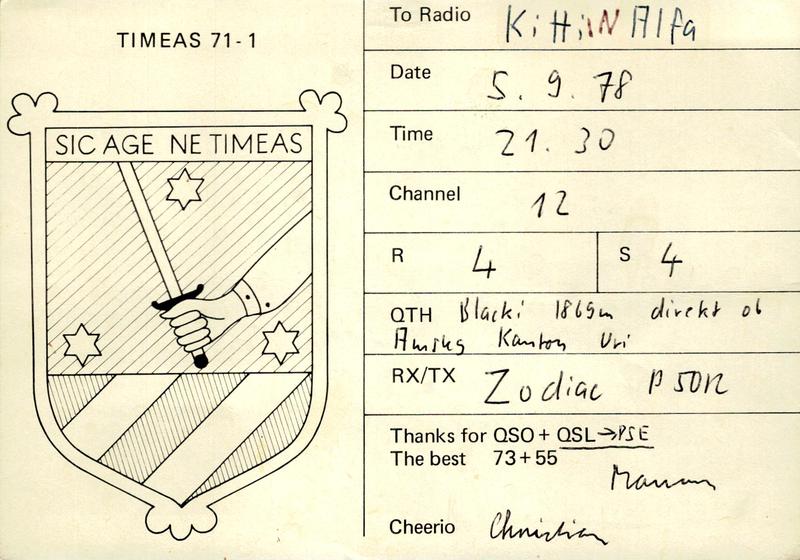 TIMEAS 71-1
SIC AGE NE TIMEAS
To Radio KittiN Alfa
Date 5. 9. 78
Time 21. 30
Channel 12
R 4 S 4
QTH Blacki 1869m direkt ob
Amsteg Kanton Uri
RX/TX Zodiac P
Thanks for QSO + QSL → PSE
The best 73+55
Cheerio Christian